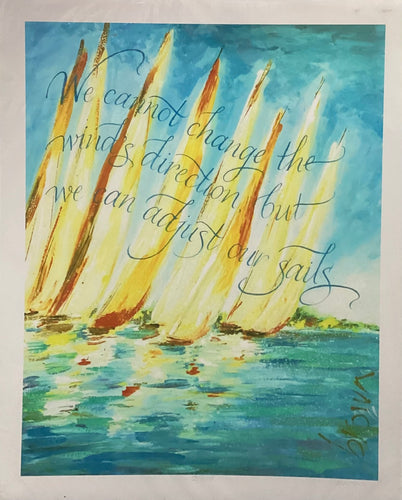 We cannot change the
winds direction, but
we can adjust our sails